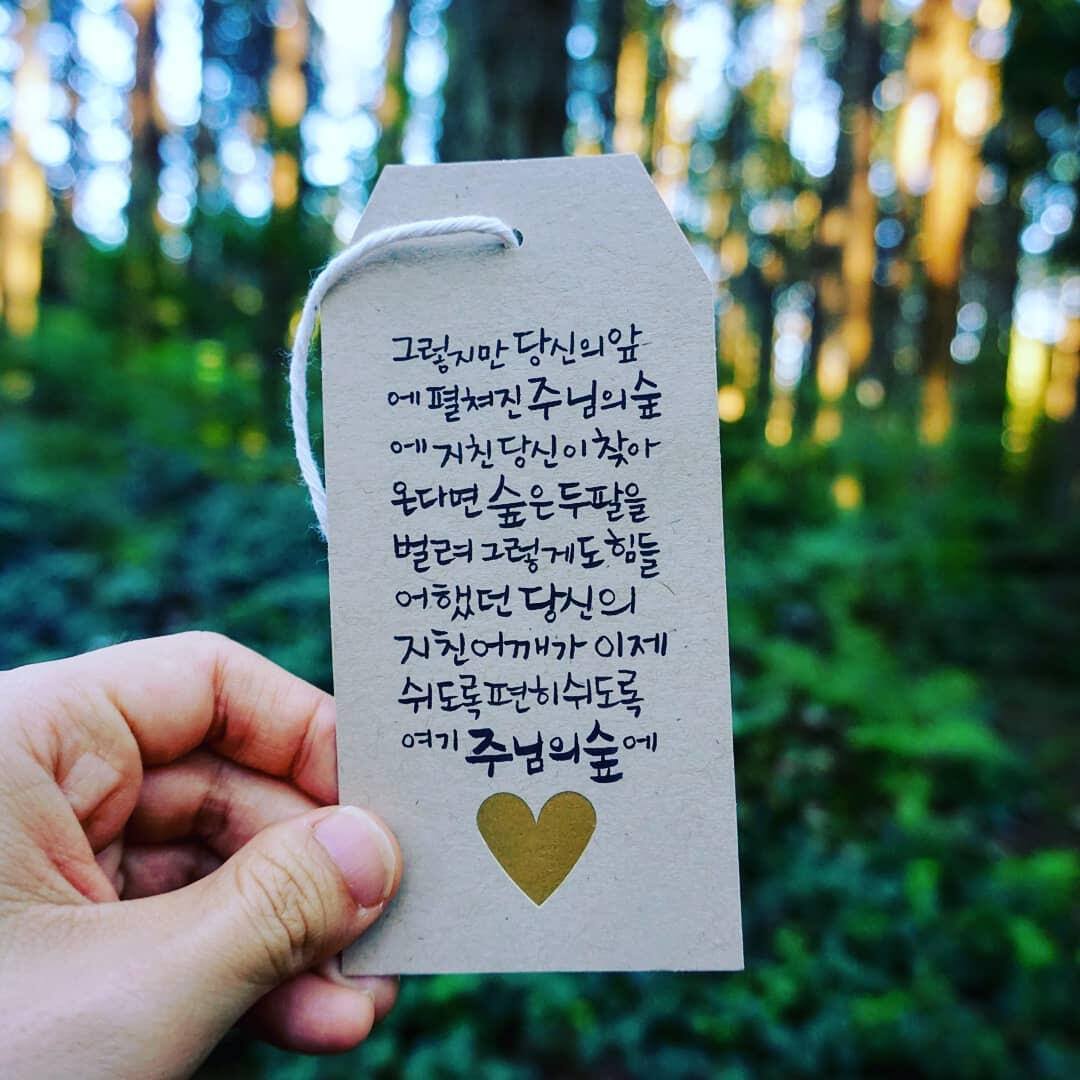 그렇지만 당신의 앞
에 펼쳐진 주님의 숲
에 지친 당신이 찾아
온다면 숲은 두팔을
벌려 그렇게도 힘들
어했던 당신의
지친 어깨가 이제
쉬도록 편히 쉬도록
여기 주님의 숲에